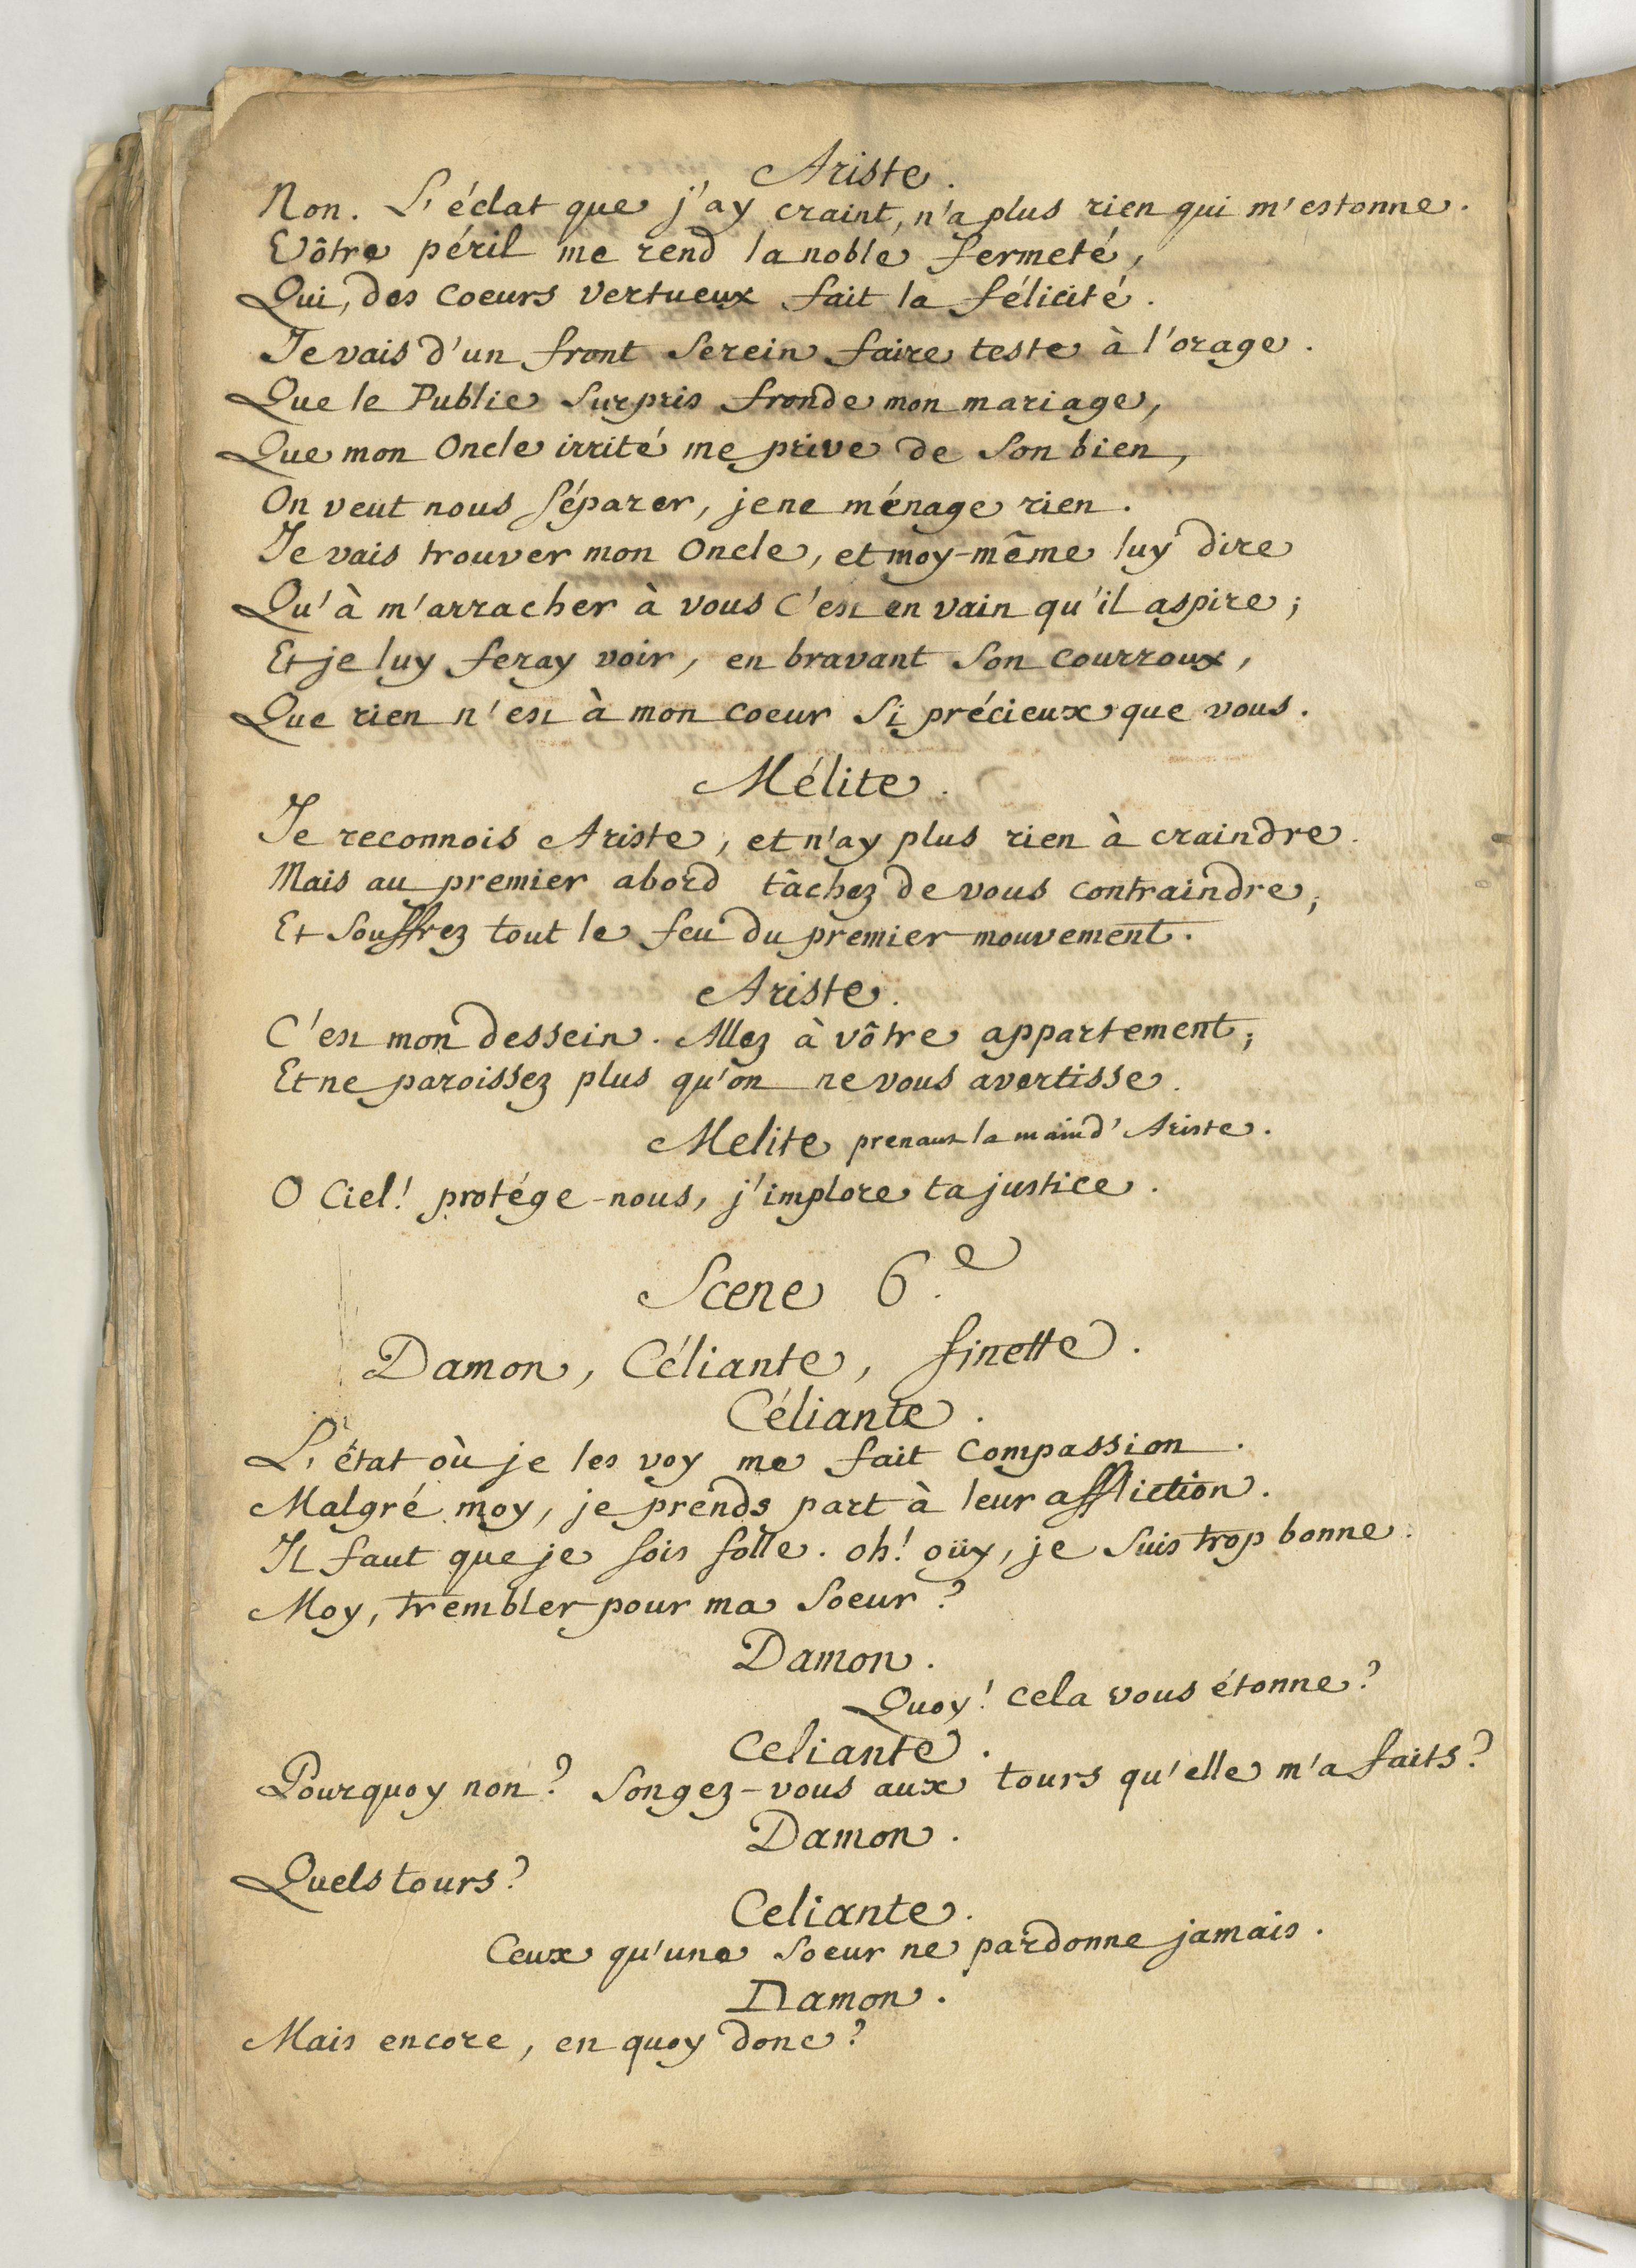 Ariste.
Non. L'éclat que j'ay craint, n'a plus rien qui m'estonne.
Vôtre péril me rend la noble fermeté,
Qui, des Coeurs Vertueux fait la félicité.
Je vais d'un front Serein faire teste à l'orage.
Que le Public Surpris fronde mon mariage,
Que mon Oncle irrité me prive de Son bien,
On veut nous Séparer, je ne ménage rien.
Je vais trouver mon Oncle, et moy-même luy dire
Qu'à m'arracher à vous C'est en vain qu'il aspire;
Et je luy feray voir, en bravant Son Courroux,
Que rien n'est à mon Coeur Si précieux que vous.
Mélite.
Je reconnois Ariste, et n'ay plus rien à craindre.
Mais au premier abord tâchez de vous Contraindre,
Et Souffrez tout le feu du premier mouvement.
Ariste.
C'est mon dessein. Allez à vôtre appartement;
Et ne paroissez plus qu'on ne vous avertisse.
Melite prenant la main d'Ariste.
O Ciel! protége-nous, j'implore ta justice.
Scene 6.e
Damon, Céliante, finette.
Céliante.
L'état où je les voy me fait Compassion.
Malgré moy, je prends part à leur affliction.
Il faut que je sois folle. oh! oüy, je Suis trop bonne.
Moy, trembler pour ma Soeur?
Damon.
Quoy! Cela vous étonne?
Celiante.
Pourquoy non? Songez-vous aux tours qu'elle m'a faits?
Damon.
Quels tours?
Celiante.
Ceux qu'une Soeur ne pardonne jamais.
Damon.
Mais encore, en quoy donc?